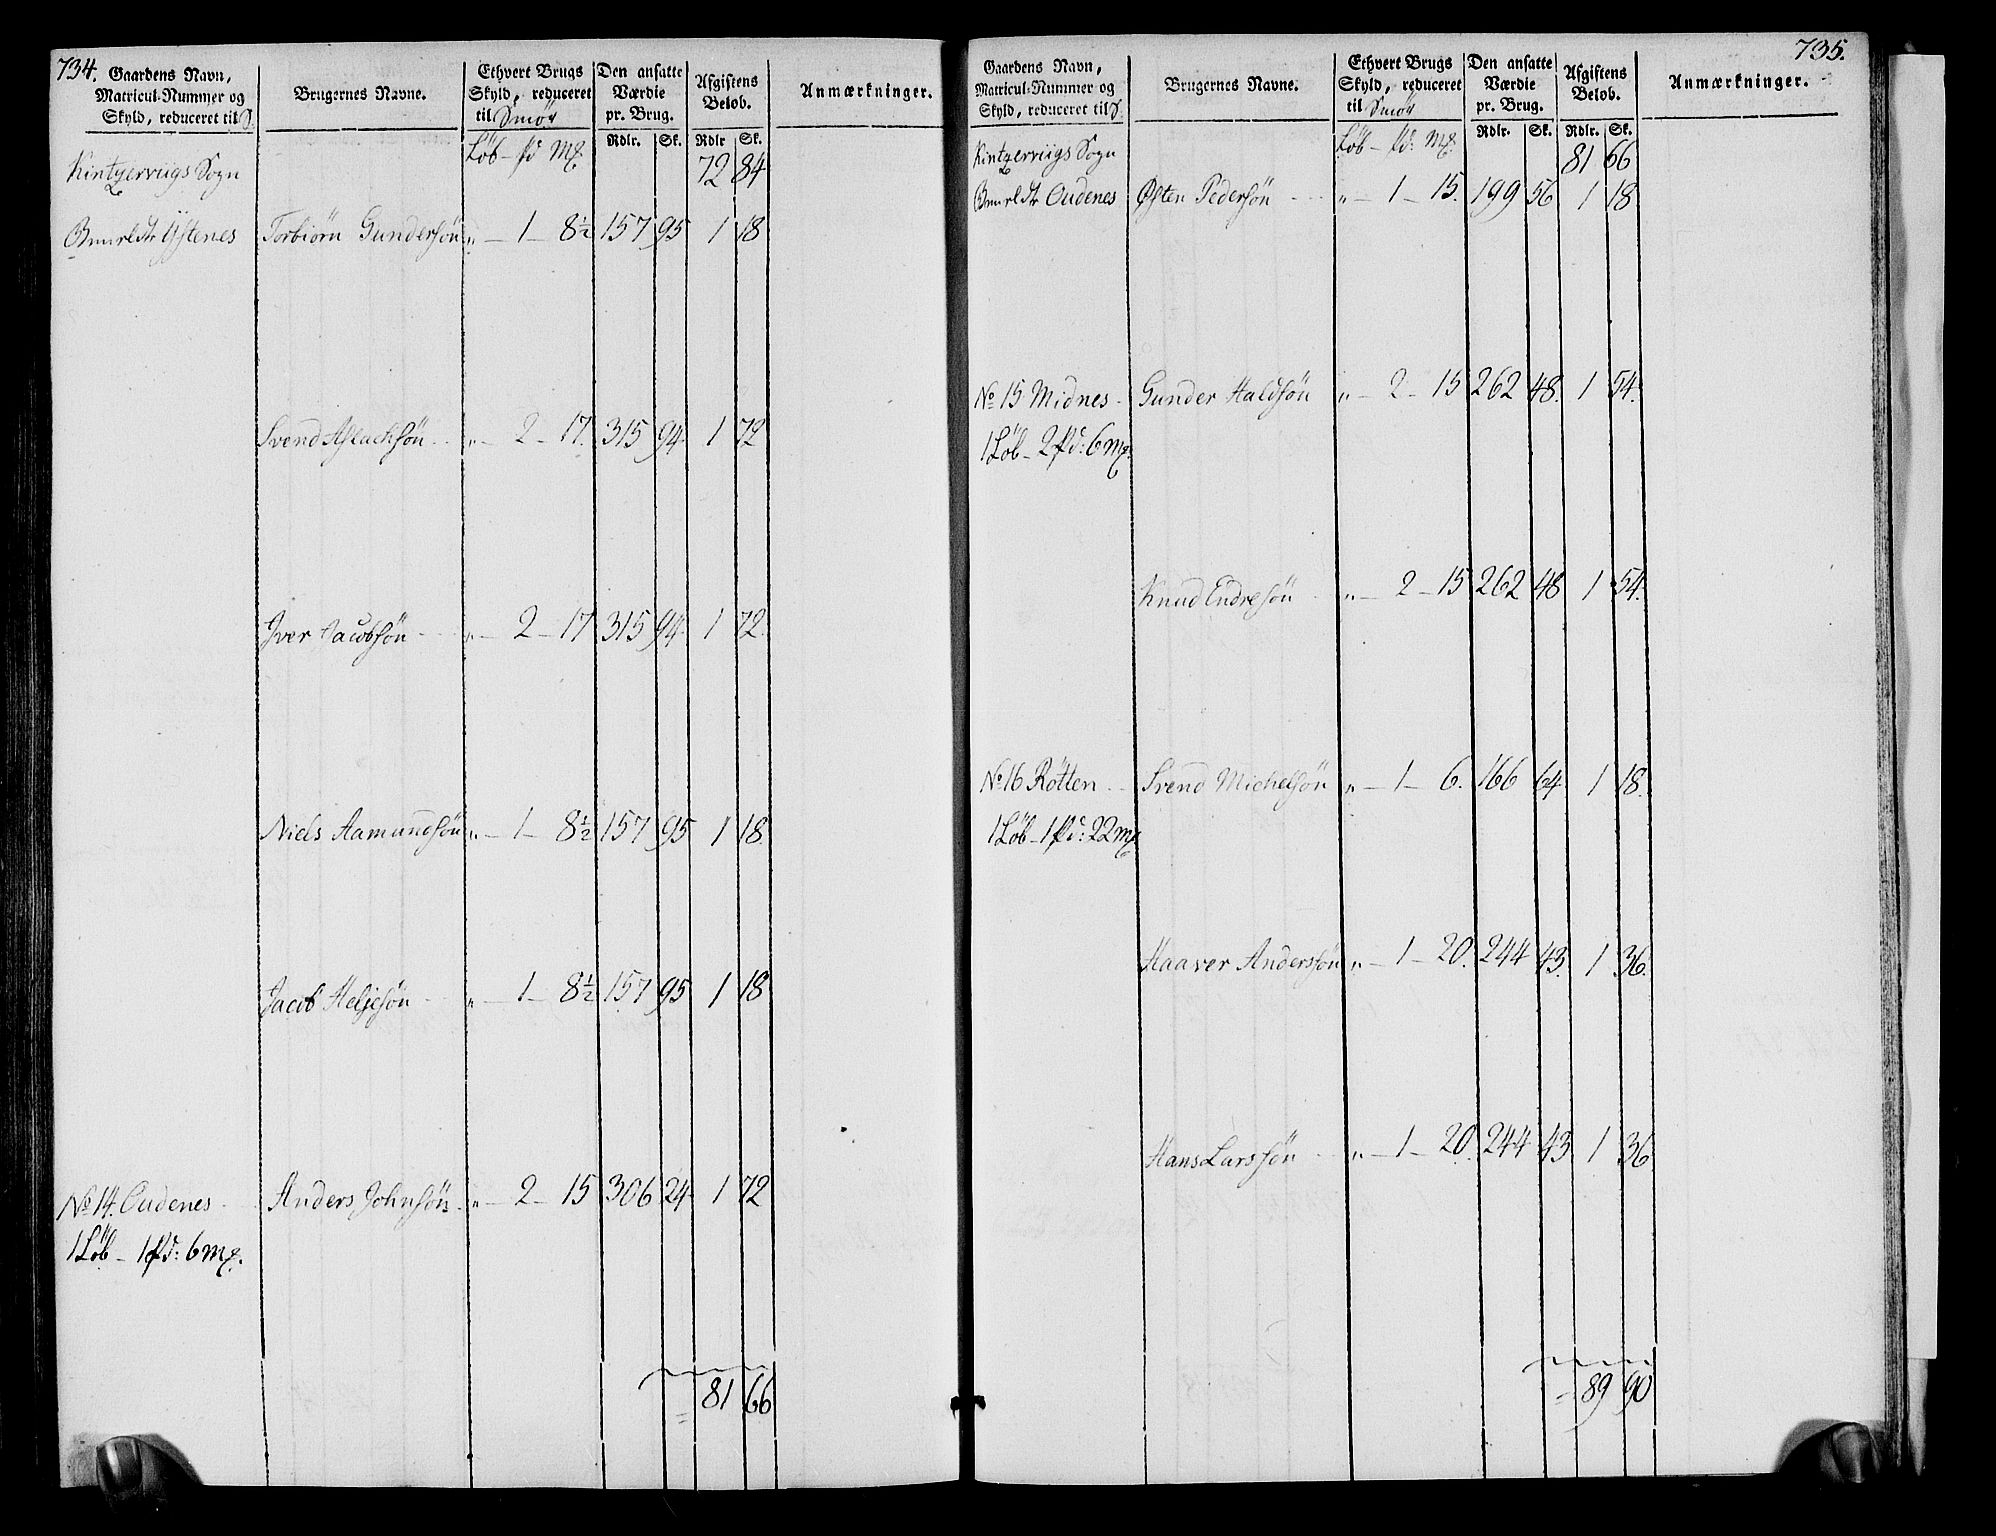 734.
Gaardens Navn, Matricul-Nummer og Skyld, reduceret til
Brugernes Navne.
Ethvert Brugs Skyld, reduceret til Smör
Den ansatte Værdie pr. Brug.
Afgiftens Beløb.
Anmærkninger.
Löb - Pd Mk Rdlr. Sk. Rdlr Sk.
Kintzerviigs Sogn 72 84
Ystenes Torbiörn Gundersön „ - 1 - 8½ 157 95 1 18
Svend Aslachsön „ - 2 - 17. 315 94 1 72
Iver Jacobsön „ - 2 - 17 315 94 1 72
Niels Aamundsön „ - 1 - 8½ 157 95 1 18
Jacob Heljesön „ - 1 - 8½ 157 95 1 18
No 14. Oudenes Anders Johnsön „ - 2 - 15 306 24 1 72
1 Löb - 1 Pd: 6 mk.
= 81 66
735.
Gaardens Navn, Matricul-Nummer og Skyld, reduceret til
Brugernes Navne.
Ethvert Brugs Skyld, reduceret til Smör
Den ansatte Værdie pr. Brug.
Afgiftens Beløb.
Anmærkninger.
Löb - Pd: Mk. Rdlr. Sk. Rdlr. Sk.
Kintzerviigs Sogn 81 66
Oudenes Østen Pedersön „ - 1 - 15. 199 56 1 18
No 15 Midnes Gunder Haldsön „ - 2 - 15 262 48. 1 54.
1 Löb - 2 Pd: 6 mk.
Knud Endresön „ - 2 - 15 262 48 1 54.
No 16 Rötten Svend Michelsön „ - 1 - 6. 166 64. 1 18.
1 Löb - 1 Pd: 22 mk
Haaver Andersön „ - 1 - 20. 244 43. 1 36.
Hans Larssön „ - 1 - 20. 244 43 1 36
= 89 90